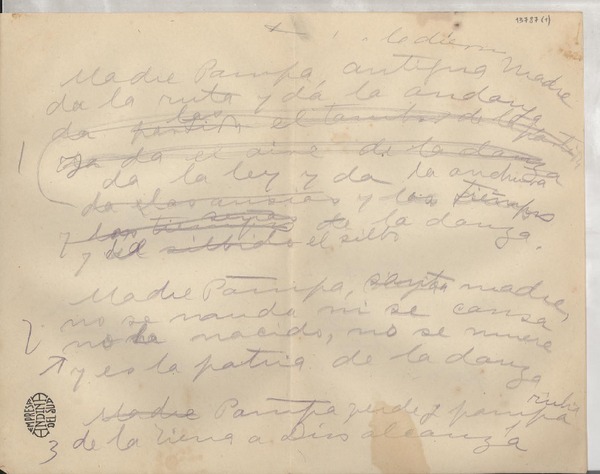 13787(1)
Madre Pampa, antigua Madre
da la ruta y da la andanza
da el tambor de la
da el aire de la danza
1
da la ley y da la
da las ansias y los tiempos
y de la danza.
y da silbido el silbo
Madre Pampa, santa madre,
no se muda ni se cansa
2 no ha nacido, no se muere
y es la patria de la danza
Madre Pampa verde y pampa rubia
3 de la tierra a Dios alcanza
EMPRESA ANDINA DEL SUR